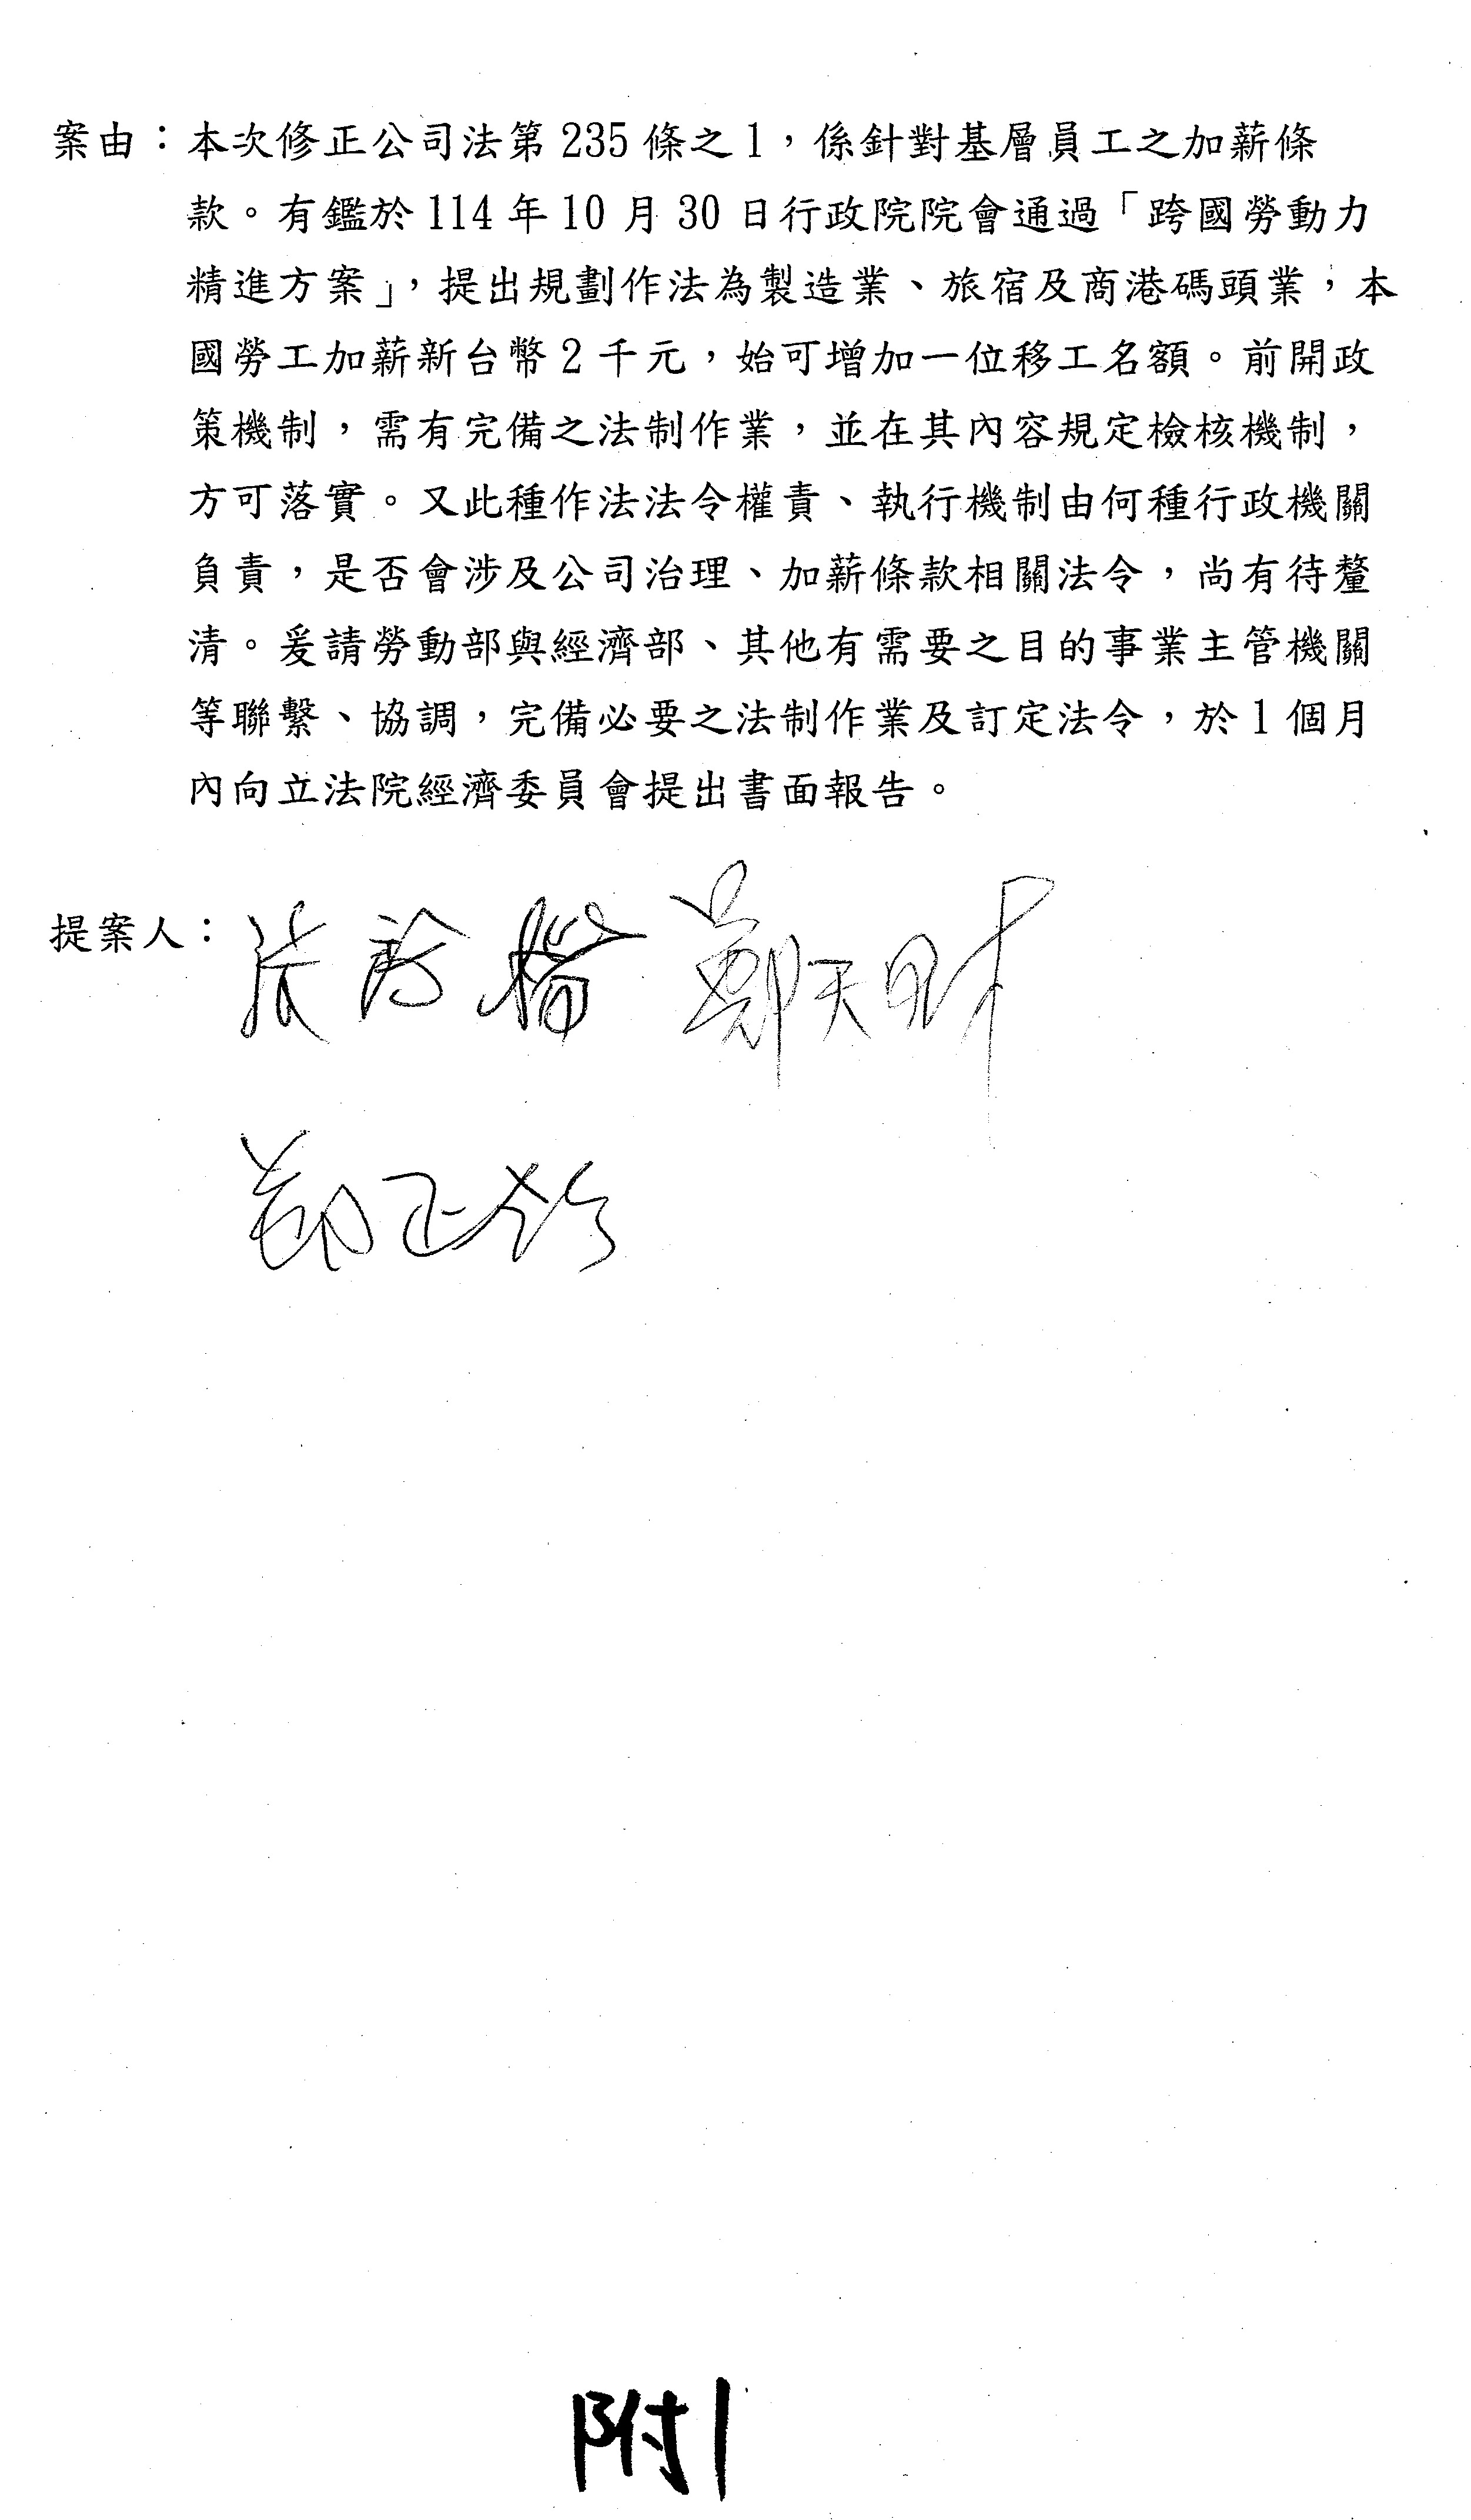 案由：本次修正公司法第 235 條之 1，係針對基層員工之加薪條
款。有鑑於 114 年 10 月 30 日行政院院會通過「跨國勞動力
精進方案」，提出規劃作法為製造業、旅宿及商港碼頭業，本
國勞工加薪新台幣 2 千元，始可增加一位移工名額。前開政
策機制，需有完備之法制作業，並在其內容規定檢核機制，
方可落實。又此種作法法令權責、執行機制由何種行政機關
負責，是否會涉及公司治理、加薪條款相關法令，尚有待釐
清。爰請勞動部與經濟部、其他有需要之目的事業主管機關
等聯繫、協調，完備必要之法制作業及訂定法令，於 1 個月
內向立法院經濟委員會提出書面報告。
提案人：張啓楷 鄭天財
鄭正鈐
附1